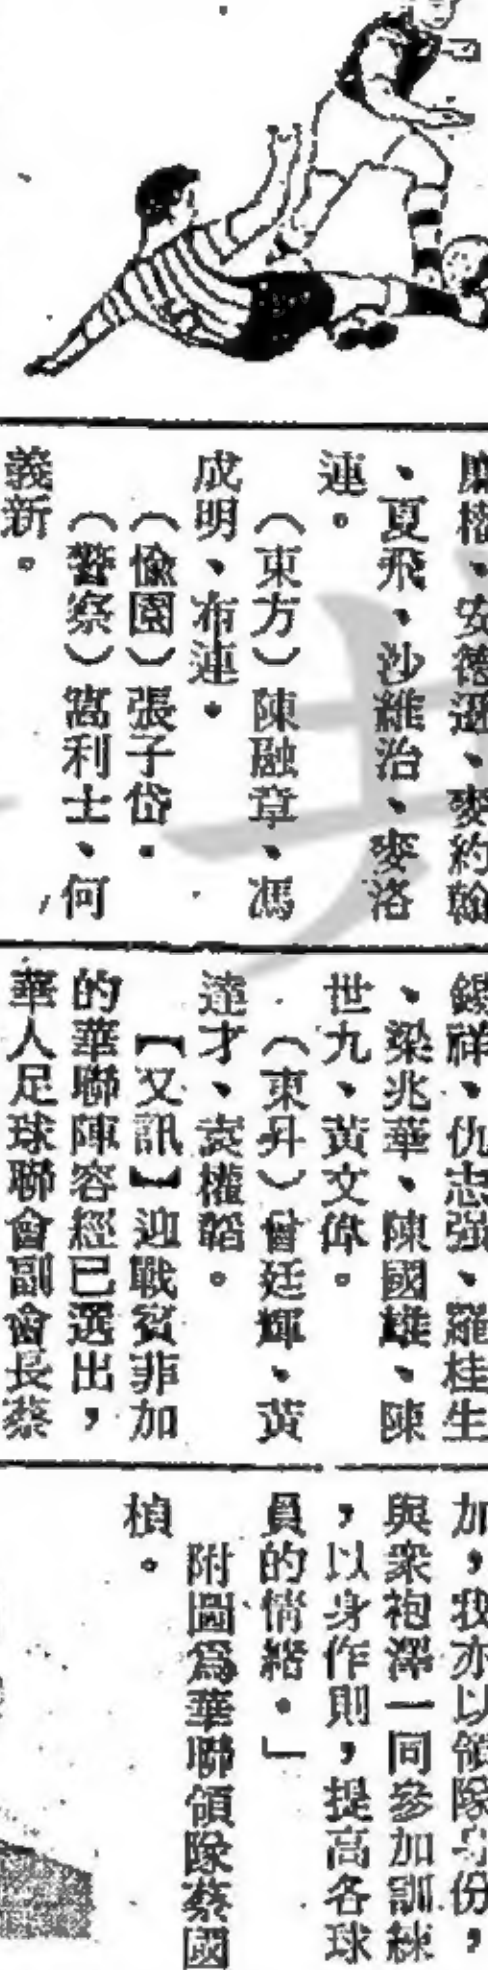 廉權、安德遜、麥約翰
、夏飛、沙維治、麥洛
連。
（東方）陳融章、馮
成明、布連。
（愉園）張子岱。
（警察）富利士、何
義新。
錫祥、仇志強、羅桂生
、梁兆華、陳國雄、陳
世九、黃文偉。
（東昇）曾廷輝、黃
達才、袁權韜。
【又訊】迎戰賓菲加
的華聯陣容經已選出，
華人足球聯會副會長蔡
加，我亦以領隊身份，
與眾袍澤一同參加訓練
，以身作則，提高各球
員的情緒。」
附圖爲華聯領隊蔡國
楨。